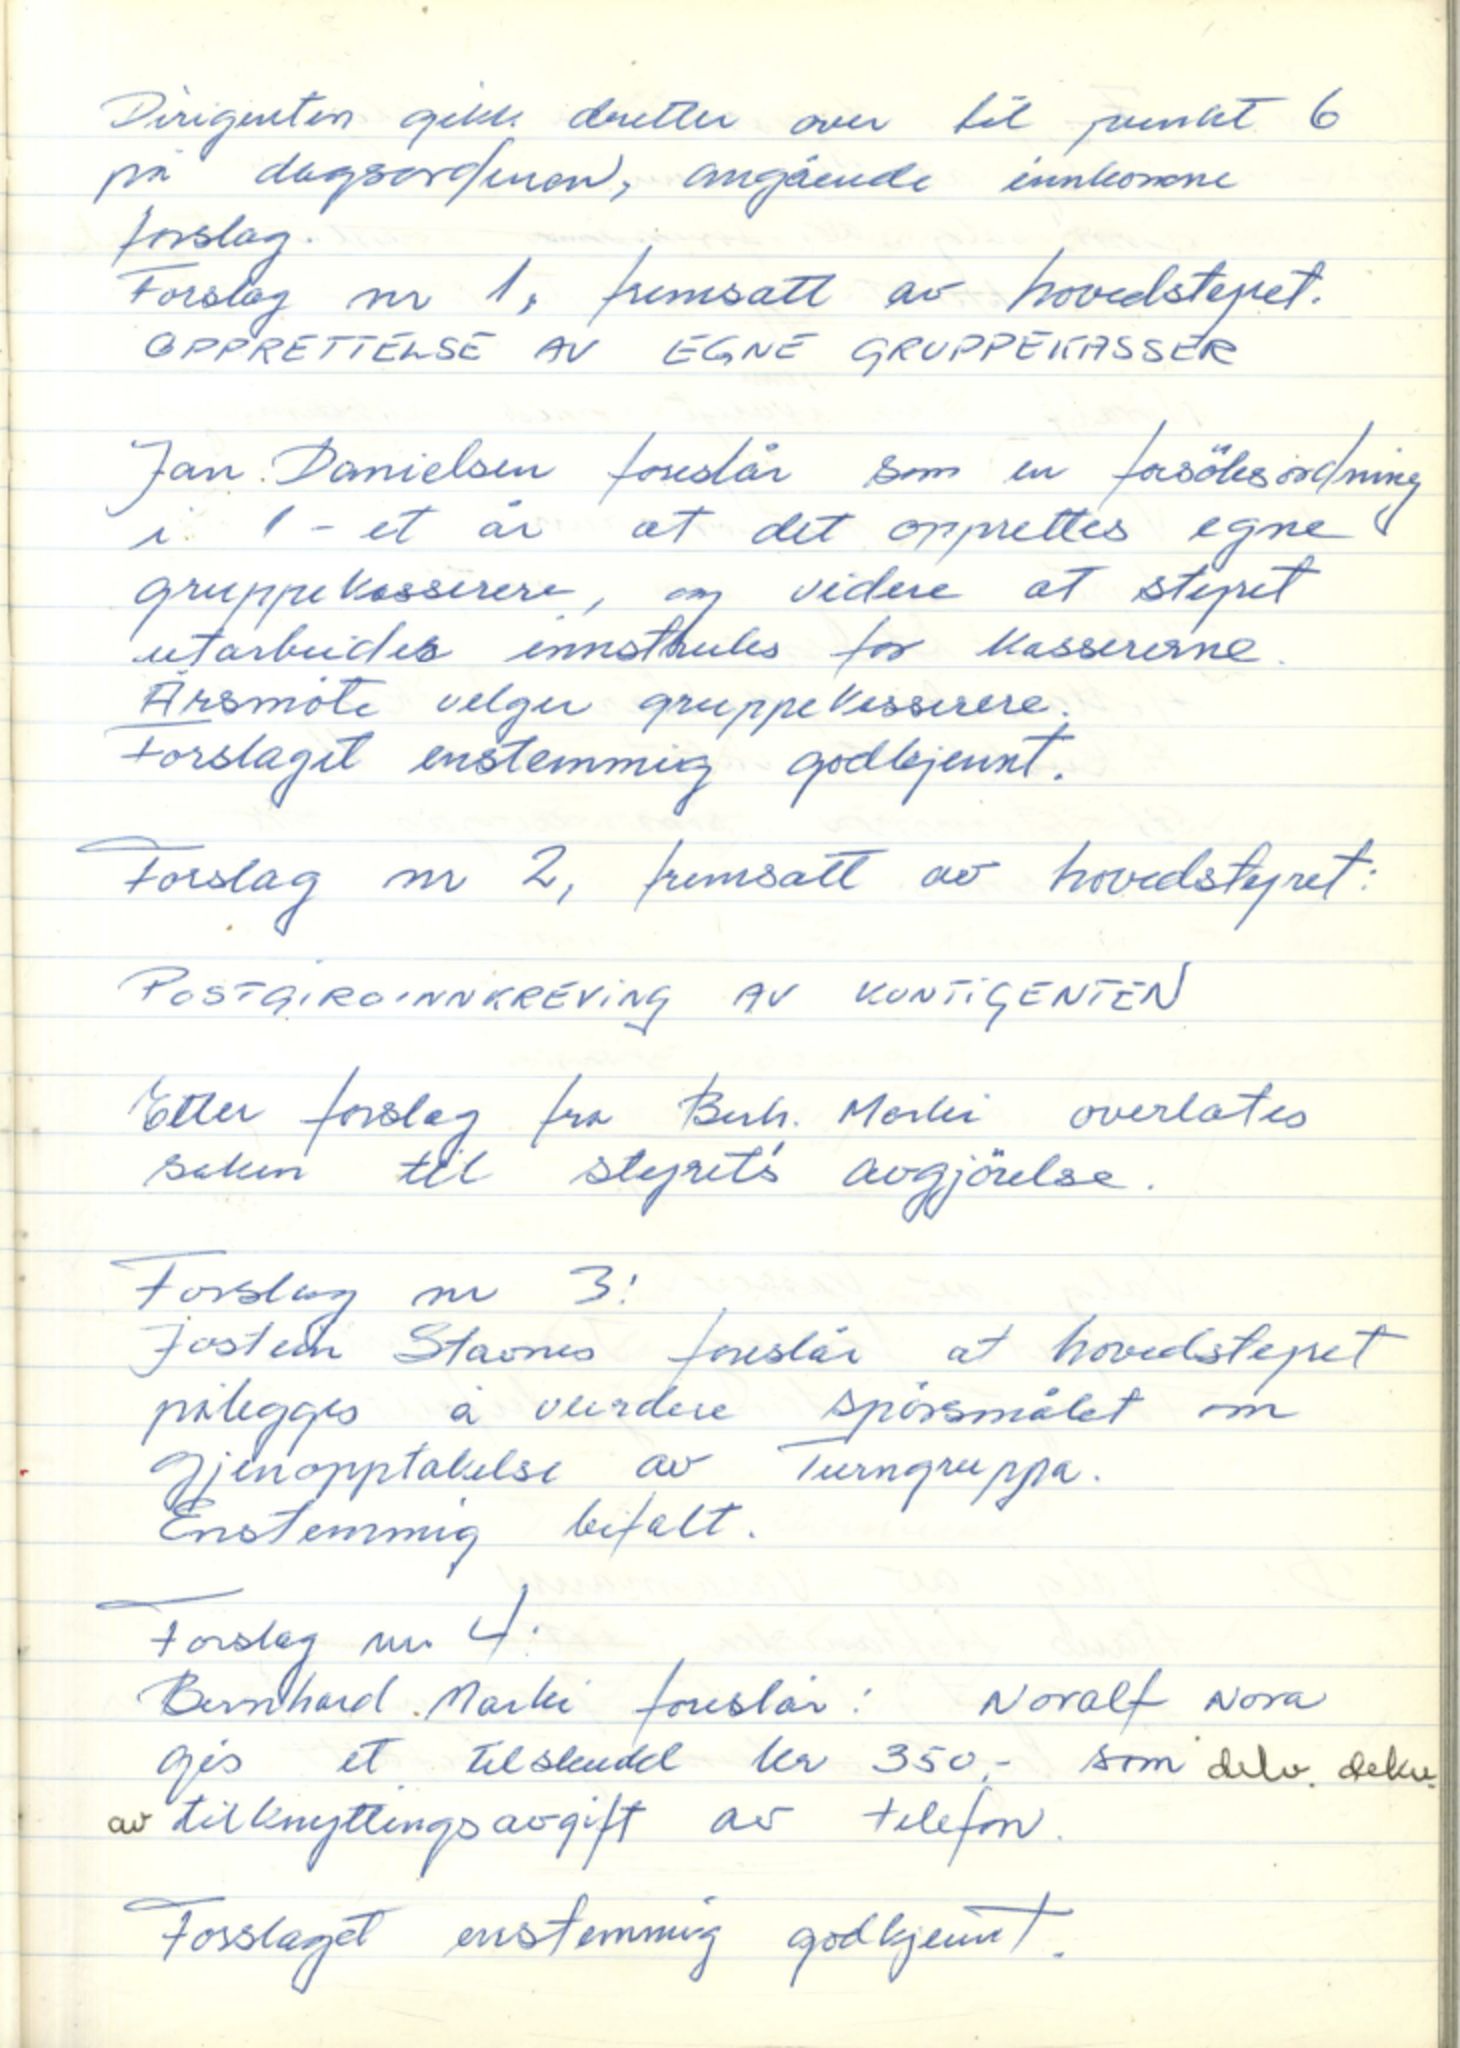 Dirigenten gikk deretter over til punkt 6
på dagsordenen, angående innkomne
forslag.
Forslag nr 1, fremsatt av hovedstyret.
OPPRETTELSE AV EGNE GRUPPEKASSER
Jan Danielsen foreslår som en forsöksordning
i 1 - et år at det opprettes egne
gruppekasserere, og videre at styret
utarbeides innstruks for kassererne.
Årsmöte velger gruppekasserere.
Forslaget enstemmig godkjennt.
Forslag nr 2, fremsatt av hovedstyret:
POSTGIROINNKREVING AV KONTIGENTEN
Etter forslag fra Bernh. Marki overlates
saken til styret's avgjörelse.
Forslag nr 3:
Jostein Stavnes foreslår at hovedstyret
pålegges å vurdere spörsmålet om
gjenopptakelse av Turngruppa.
Enstemmig bifalt.
Forslag nr. 4:
Bernhard Marki foreslår: Noralf Nora
gis et tilskudd kr 350,- som delv. dekn.
av tilknyttingsavgift av telefon.
Forslaget enstemmig godkjennt.